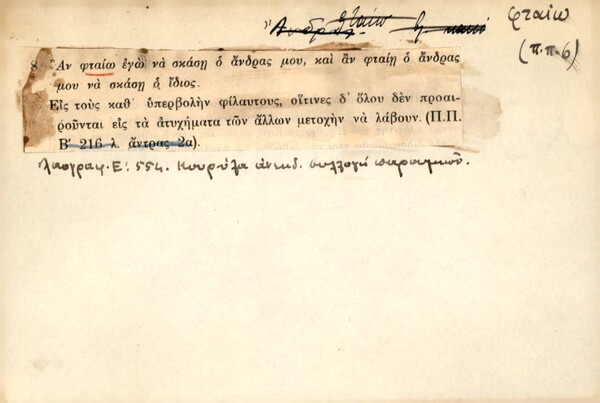 φταίω
(π.π. 6)
8. Ἂν φταίω ἐγὼ νὰ σκάσῃ ὁ ἄνδρας μου, καὶ ἂν φταίῃ ὁ ἄνδρας
μου νὰ σκάσῃ ὁ ἴδιος.
Εἰς τοὺς καθ᾿ ὑπερβολὴν φίλαυτους, οἵτινες δ᾿ ὅλου δὲν προαι-
ροῦνται εἰς τὰ ἀτυχήματα τῶν ἄλλων μετοχὴν νὰ λάβουν. (Π.Π.
Β΄ 216 λ. ἄντρας 2α).
Λαογραφ. Ε: 554. Κουρύλα ἀνεκδ. συλλογὴ παροιμιῶν.